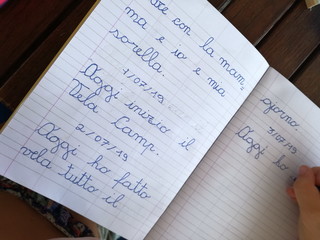 re con la mam,
ma e io e mia
sorella.
1/07/19
Oggi inizio il
Vela Camp.
2/07/19
Oggi ho fatto
vela tutto il
giorno.
3/07/19
Oggi ho